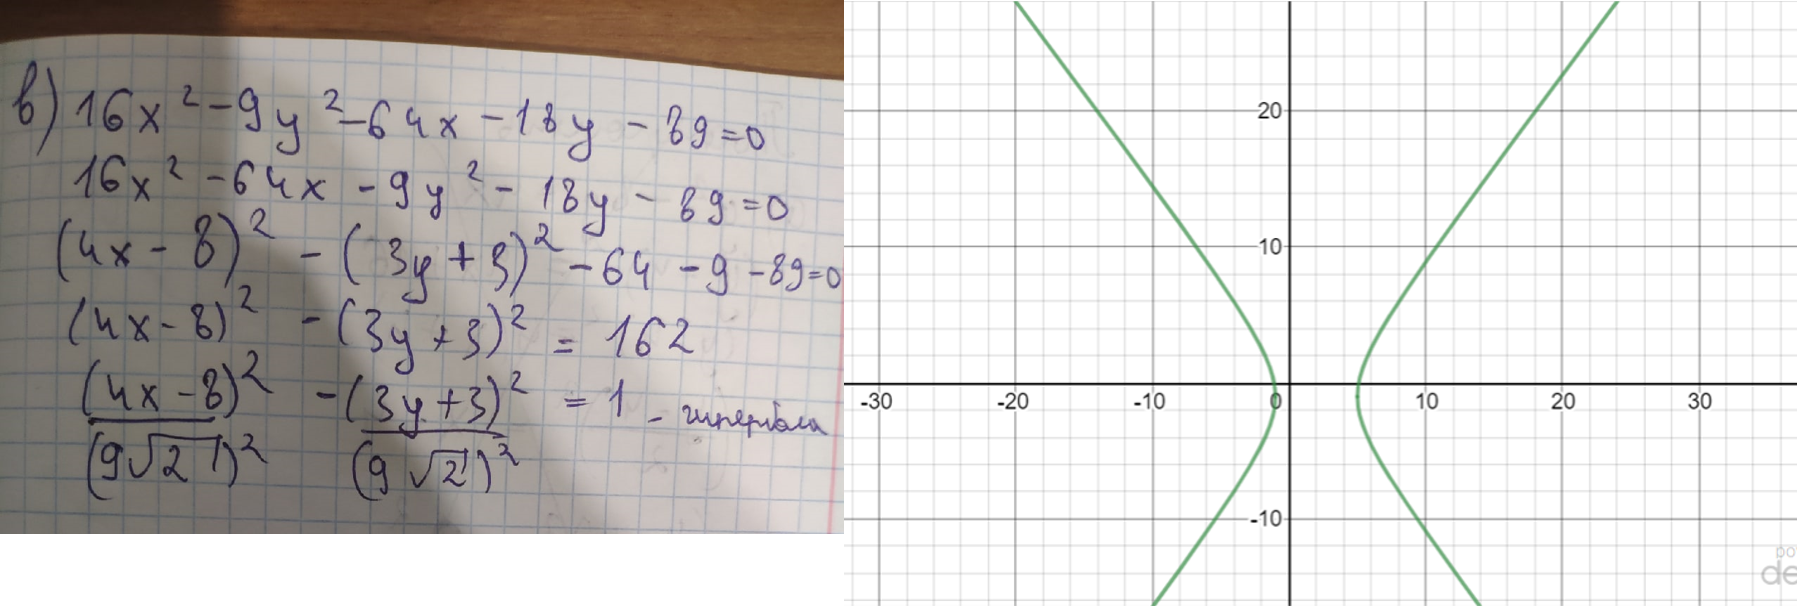 в) 16x² - 9y² - 64x - 18y - 89 = 0
16x² - 64x - 9y² - 18y - 89 = 0
(4x - 8)² - (3y + 3)² - 64 - 9 - 89 = 0
(4x - 8)² - (3y + 3)² = 162
(4x - 8)² / (9√2)² - (3y + 3)² / (9√2)² = 1 - гипербола
20
10
-30 -20 -10 0 10 20 30
-10
po
de